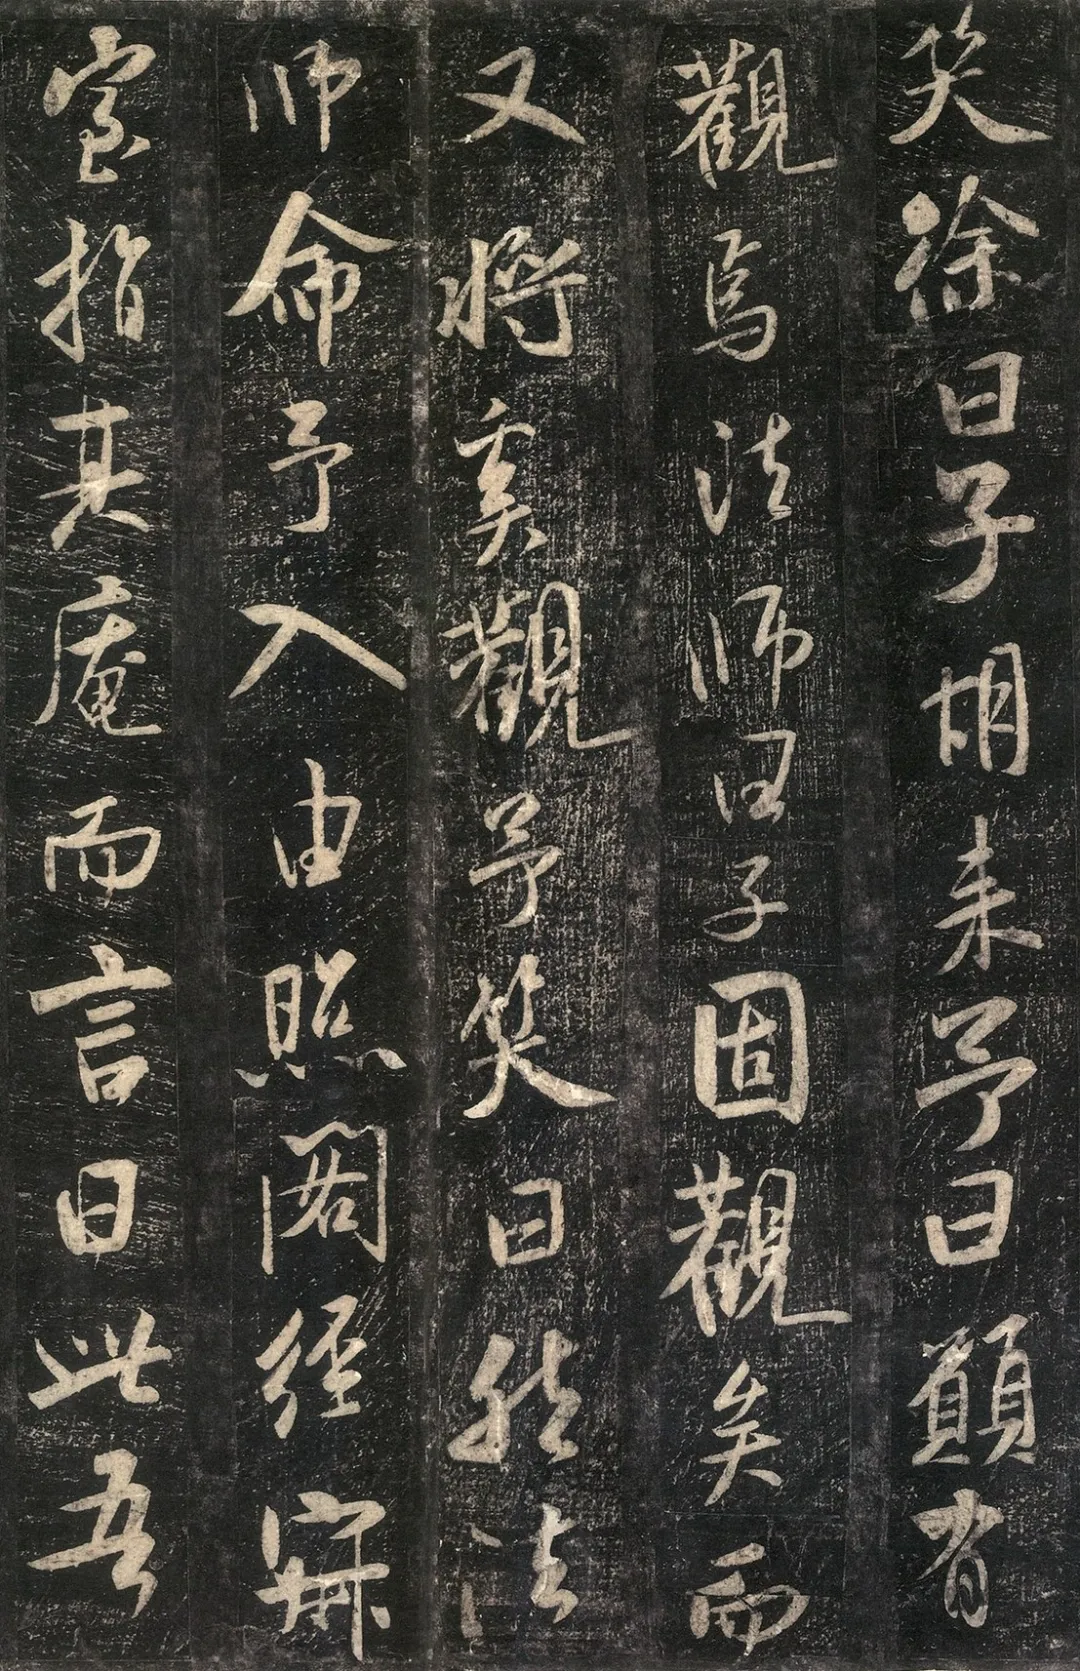 笑徐曰子胡来予曰願有
觀焉法師曰子固觀矣而
又将奚觀予笑曰然法
師命予入由照閣經寐
室指其庵而言曰此吾